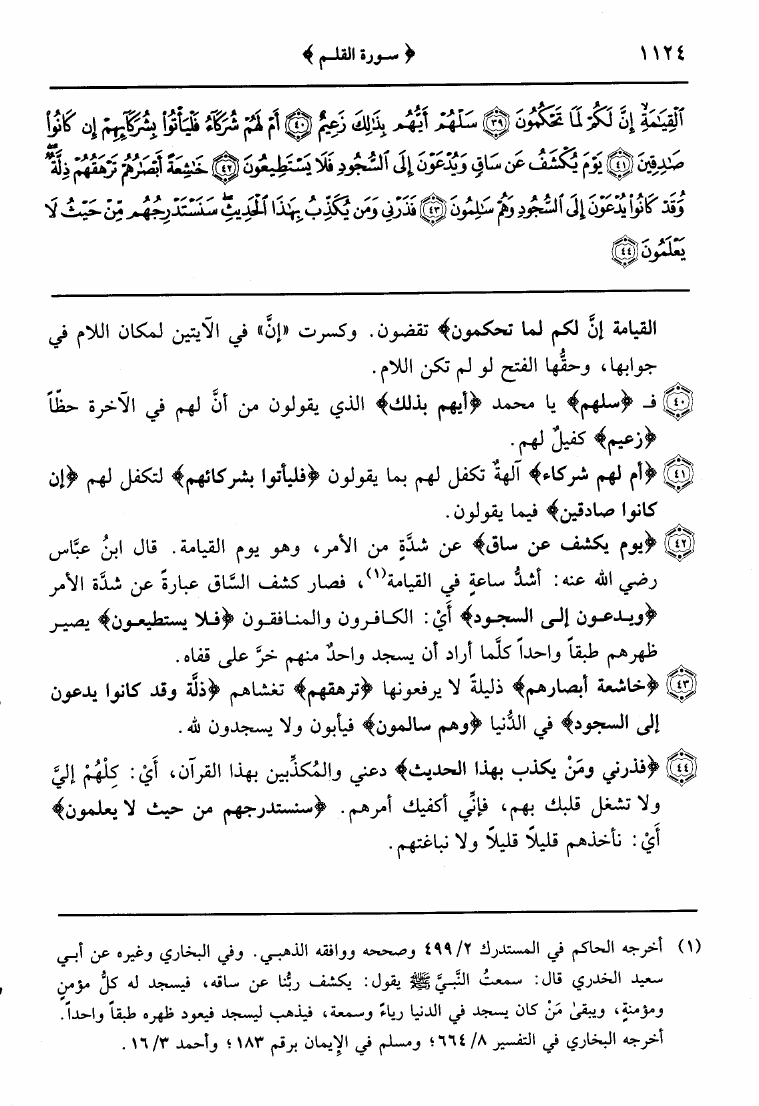 ١١٢٤
﴿ سورة القلم ﴾
ٱلْقِيَٰمَةِ إِنَّ لَكُمْ لَمَا تَحْكُمُونَ ﴿٣٩﴾ سَلْهُمْ أَيُّهُم بِذَٰلِكَ زَعِيمٌ ﴿٤٠﴾ أَمْ لَهُمْ شُرَكَآءُ فَلْيَأْتُوا۟ بِشُرَكَآئِهِمْ إِن كَانُوا۟
صَٰدِقِينَ ﴿٤١﴾ يَوْمَ يُكْشَفُ عَن سَاقٍ وَيُدْعَوْنَ إِلَى ٱلسُّجُودِ فَلَا يَسْتَطِيعُونَ ﴿٤٢﴾ خَٰشِعَةً أَبْصَٰرُهُمْ تَرْهَقُهُمْ ذِلَّةٌ ۖ
وَقَدْ كَانُوا۟ يُدْعَوْنَ إِلَى ٱلسُّجُودِ وَهُمْ سَٰلِمُونَ ﴿٤٣﴾ فَذَرْنِى وَمَن يُكَذِّبُ بِهَٰذَا ٱلْحَدِيثِ ۖ سَنَسْتَدْرِجُهُم مِّنْ حَيْثُ لَا
يَعْلَمُونَ ﴿٤٤﴾
القيامة إنَّ لكم لما تحكمون﴾ تقضون. وكسرت «إنَّ» في الآيتين لمكان اللام في
جوابها، وحقُّها الفتح لو لم تكن اللام.
﴿٤٠﴾ فـ ﴿سلهم﴾ يا محمد ﴿أيهم بذلك﴾ الذي يقولون من أنَّ لهم في الآخرة حظّاً
﴿زعيم﴾ كفيلٌ لهم.
﴿٤١﴾ ﴿أم لهم شركاء﴾ آلهةٌ تكفل لهم بما يقولون ﴿فليأتوا بشركائهم﴾ لتكفل لهم ﴿إن
كانوا صادقين﴾ فيما يقولون.
﴿٤٢﴾ ﴿يوم يكشف عن ساق﴾ عن شدَّةٍ من الأمر، وهو يوم القيامة. قال ابنُ عبَّاس
رضي الله عنه: أشدُّ ساعةٍ في القيامة(١)، فصار كشف السَّاق عبارةً عن شدَّة الأمر
﴿ويدعون إلى السجود﴾ أيْ: الكافرون والمنافقون ﴿فلا يستطيعون﴾ يصير
ظهرهم طبقاً واحداً كلَّما أراد أن يسجد واحدٌ منهم خرَّ على قفاه.
﴿٤٣﴾ ﴿خاشعة أبصارهم﴾ ذليلةً لا يرفعونها ﴿ترهقهم﴾ تغشاهم ﴿ذلَّة وقد كانوا يدعون
إلى السجود﴾ في الدُّنيا ﴿وهم سالمون﴾ فيأبون ولا يسجدون لله.
﴿٤٤﴾ ﴿فذرني ومَنْ يكذب بهذا الحديث﴾ دعني والمُكذِّبين بهذا القرآن، أيْ: كِلْهُمْ إليَّ
ولا تشغل قلبك بهم، فإنِّي أكفيك أمرهم. ﴿سنستدرجهم من حيث لا يعلمون﴾
أيْ: نأخذهم قليلاً قليلاً ولا نباغتهم.
(١) أخرجه الحاكم في المستدرك ٢/ ٤٩٩ وصححه ووافقه الذهبي. وفي البخاري وغيره عن أبي
سعيد الخدري قال: سمعتُ النَّبيَّ ﷺ يقول: يكشف ربُّنا عن ساقه، فيسجد له كلُّ مؤمنٍ
ومؤمنةٍ، ويبقىٰ مَنْ كان يسجد في الدنيا رياءً وسمعة، فيذهب ليسجد فيعود ظهره طبقاً واحداً.
أخرجه البخاري في التفسير ٨/ ٦٦٤؛ ومسلم في الإيمان برقم ١٨٣؛ وأحمد ٣/ ١٦.